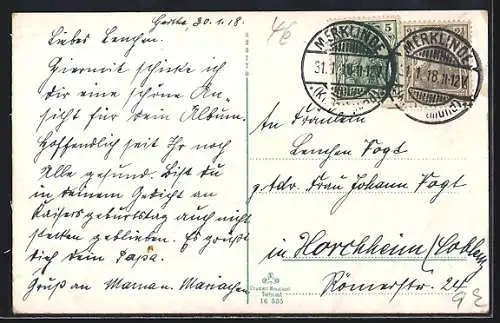 Gerthe, 30.1.18.
Liebes Lenchen.
Hiermit schicke ich
dir eine schöne An-
sicht für dein Album.
Hoffentlich seit Ihr noch
Alle gesund. Bist du
in deinem Gedicht an
Kaisersgeburtstag auch nicht
stecken geblieben. Es grüßt
dich dein Papa.
Gruß an Mama u. Mariechen
5
MERKLINDE
31.1.18 11-12V.
1.18 11-12V
An Fräulein
Lenchen Vogt
Frau Johann Vogt
in Horchheim (Coblenz
Römerstr. 24
16 505